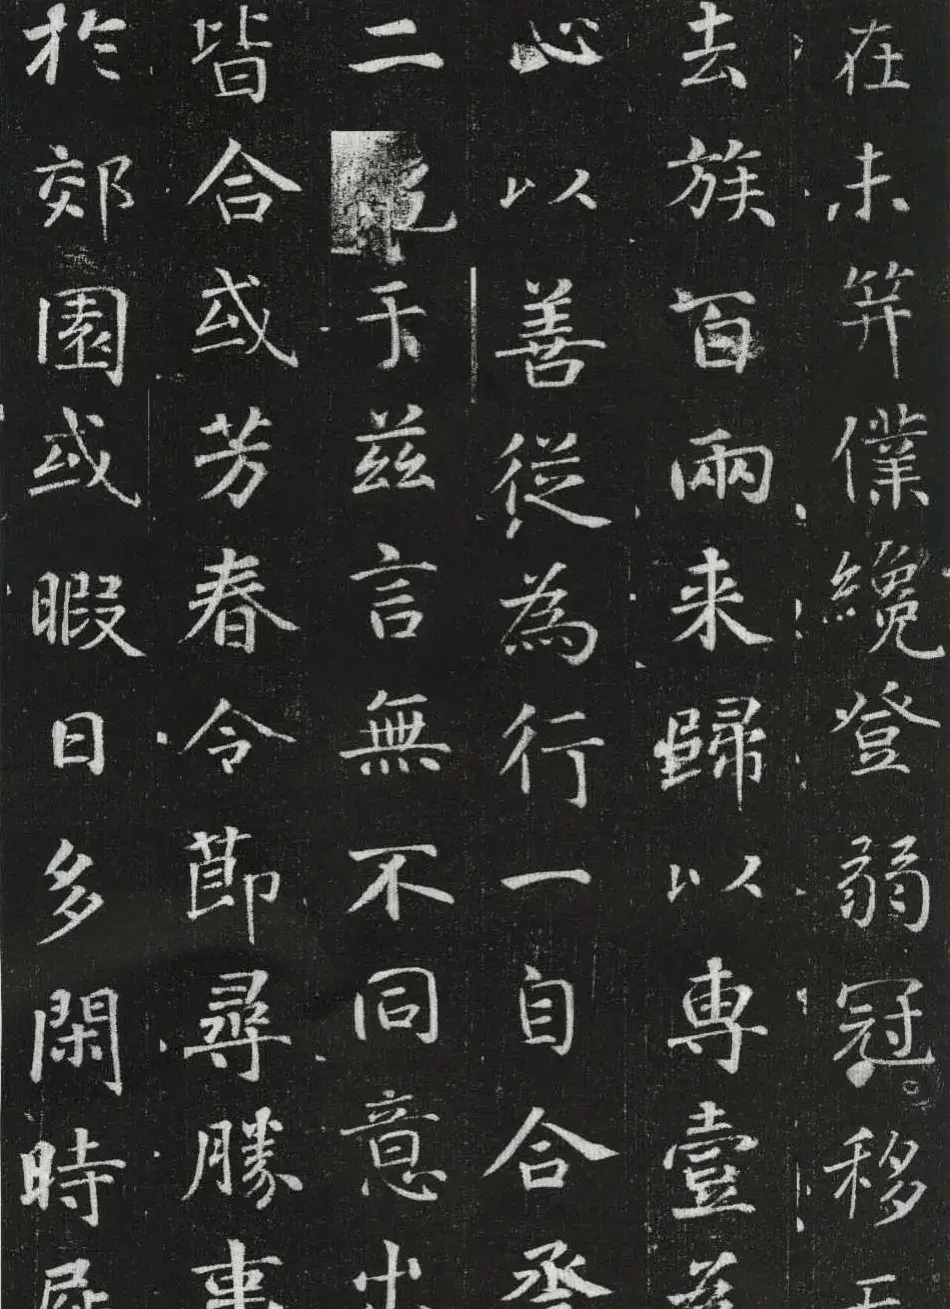 在未笄僕纔登弱冠移
去族百兩来歸以専壹
心以善從為行一自合烝
二于茲言無不同意
皆合或芳春令節尋勝事
於郊園或暇日多閑時